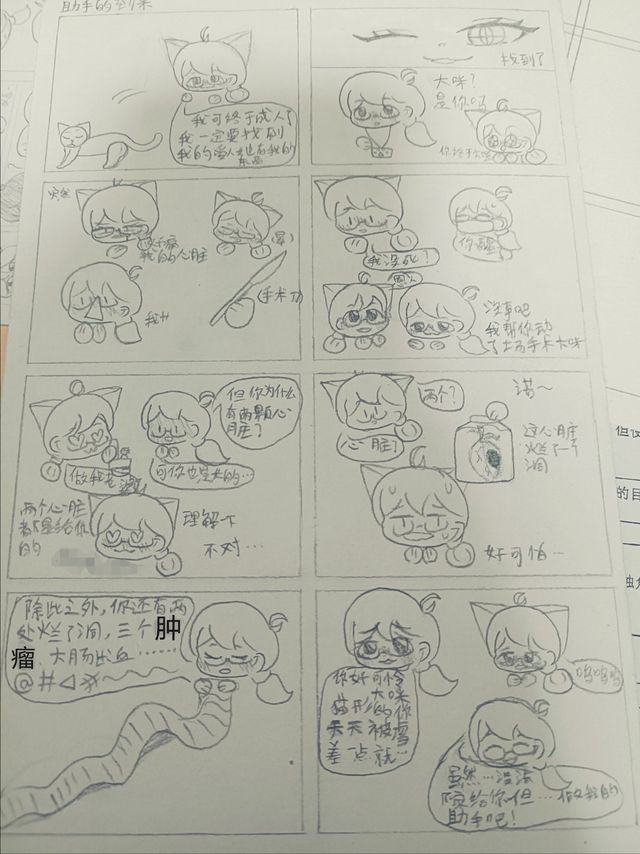 助手的到来
我可终于成人了
我一定要找到
我的
东西
找到了
大咪?
是你吗
突然
我的心脏
(晕)
我艹
(手术刀)
我没死?
你醒
没事吧
我帮你动
了土场手术大咪
但你为什么
有两颗心
脏?
做我老婆
可你也是女的…
两个心脏
都是给你
的
理解一下
不对…
两个?
心脏?
诺~
这心脏
烂了一个
洞
好可怕…
除此之外,你还有两
处烂了洞,三个肿
瘤、大肠出血……
@#
你好可怜
大咪
猫形的你
天天被虐
差一点就…
呜呜呜
虽然…没法
嫁给你但…做我的
助手吧!
但
的目